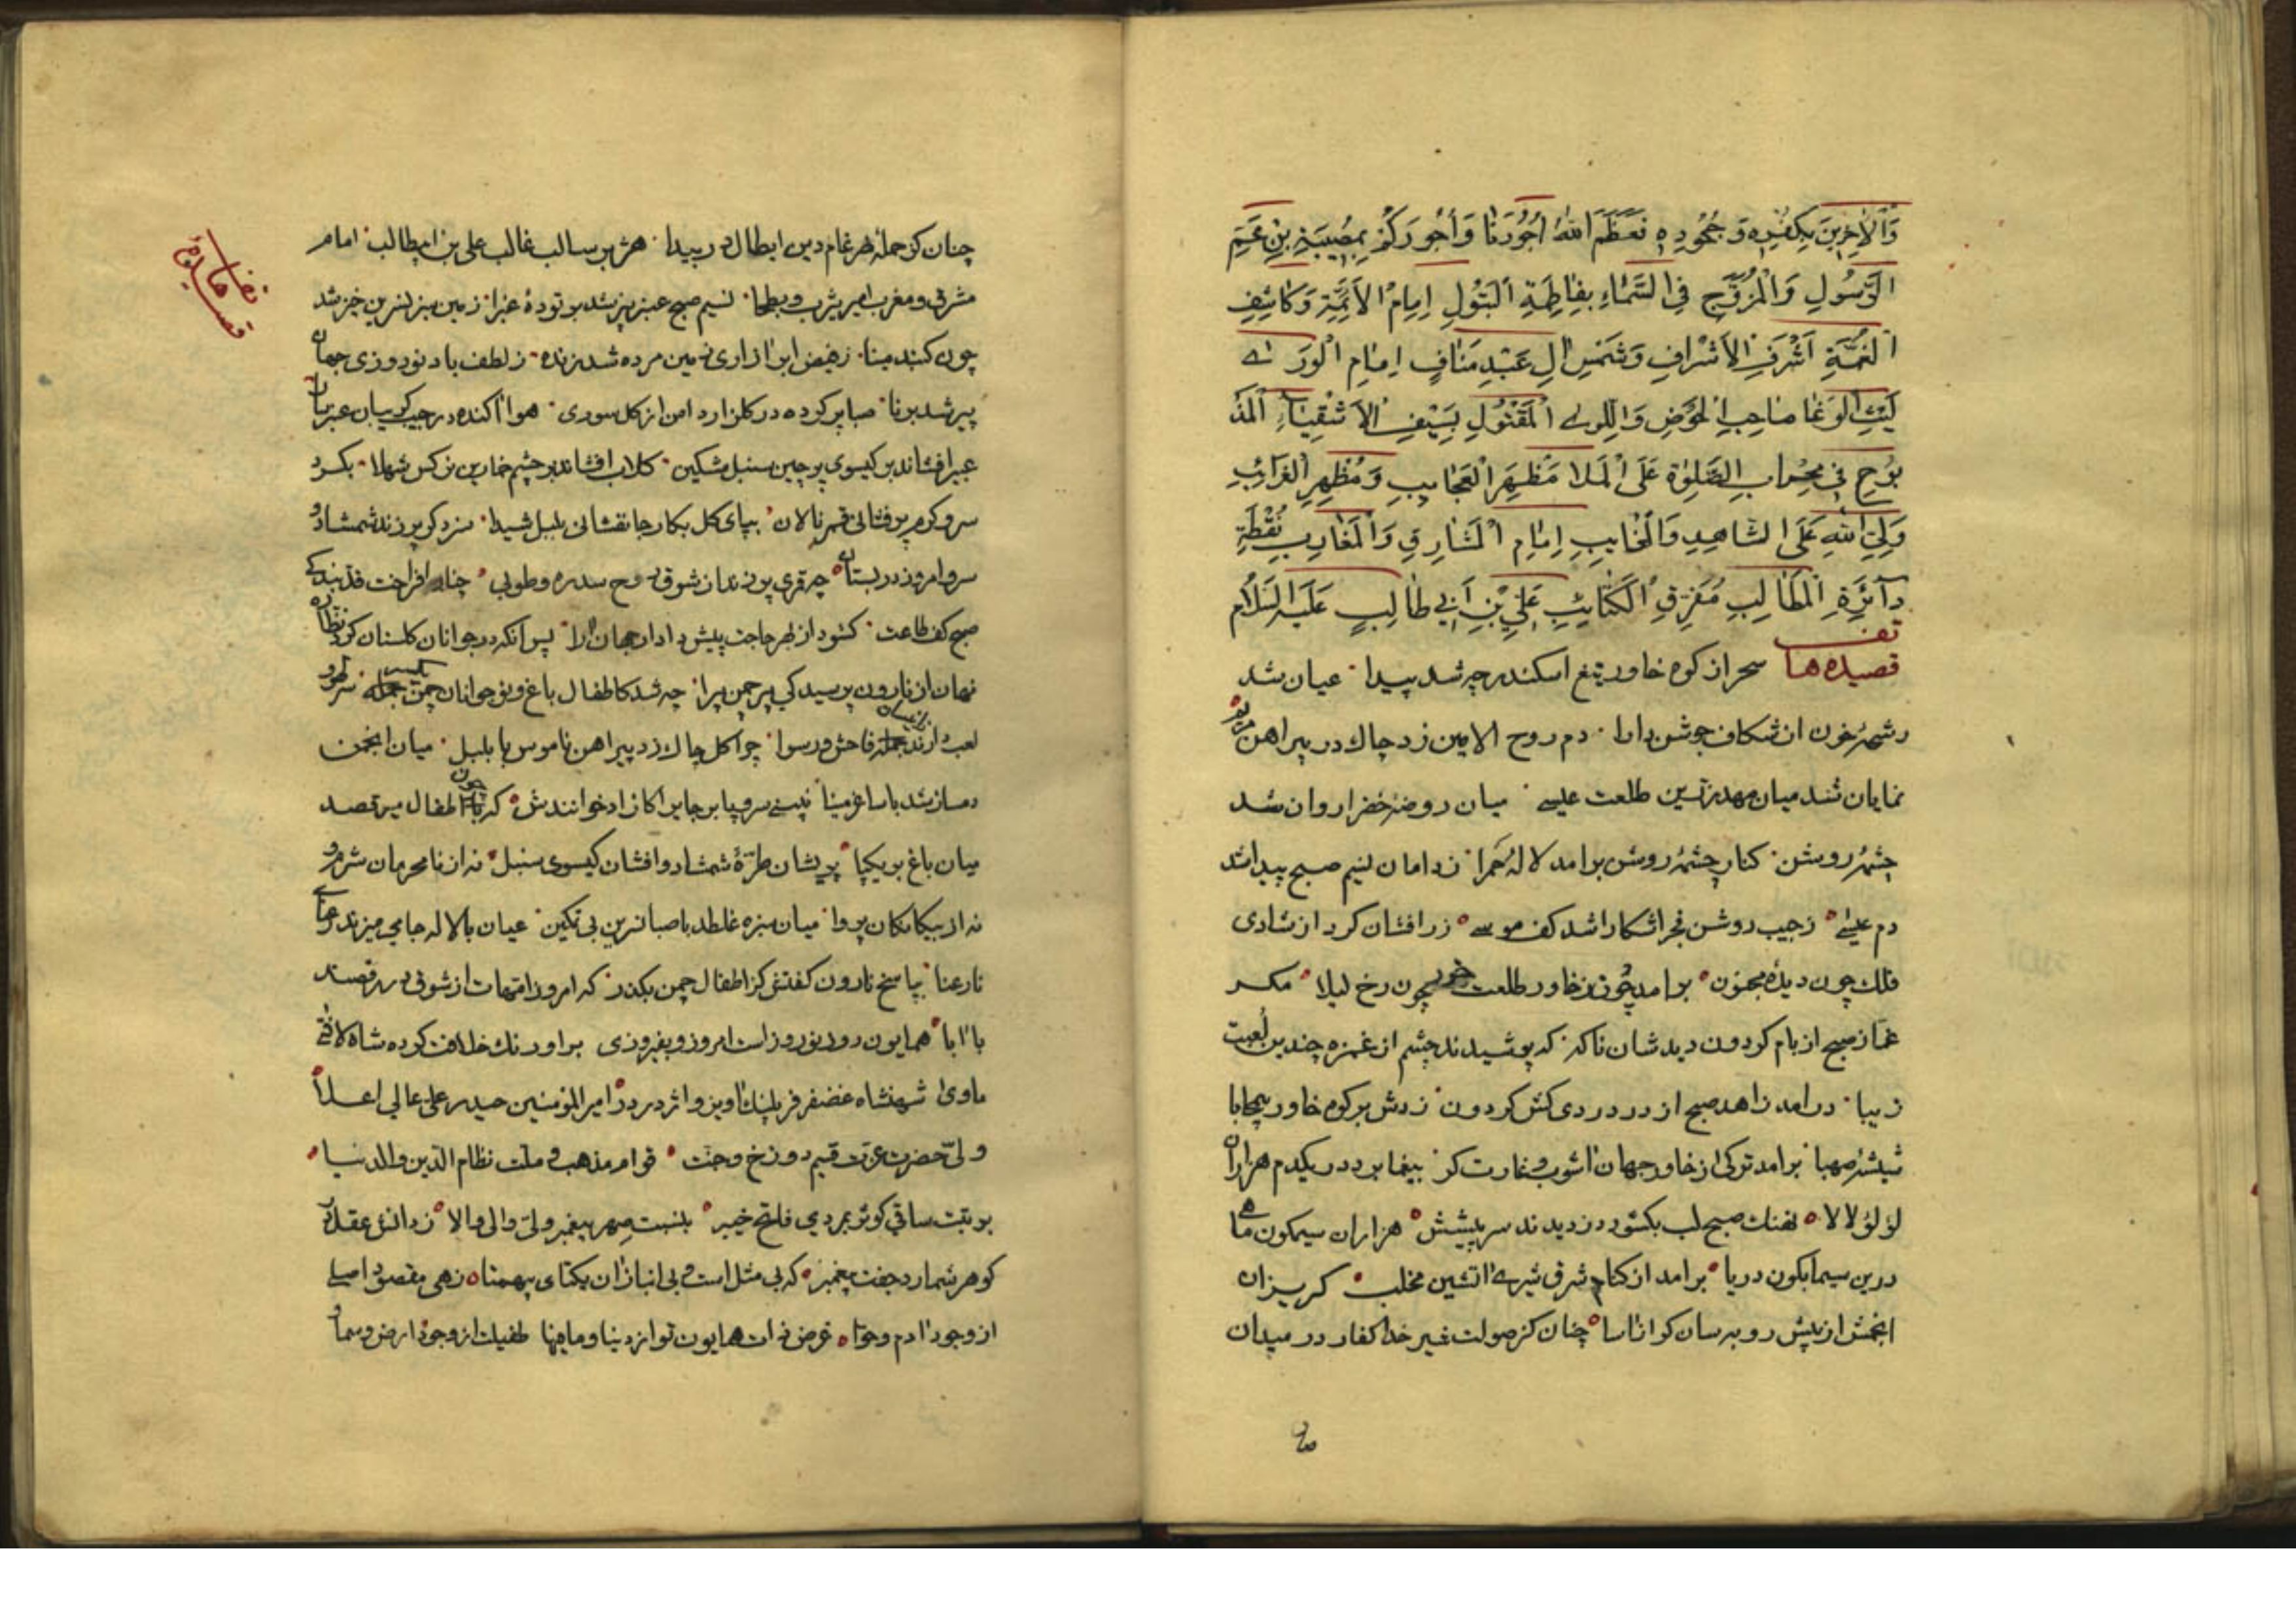 وَالْاٰخِرِينَ بِكُفْرِهِ وَجُحُودِهِ فَعَظَّمَ اللّٰهُ اُجُورَنَا وَاُجُورَكُمْ بِمُصِيبَةِ بْنِ عَمِّ
الرَّسُولِ وَالْمُزَوَّجِ فِي السَّمَاءِ بِفَاطِمَةِ الْبَتُولِ اِمَامِ الْاَئِمَّةِ وَكَاشِفِ
الْغُمَّةِ اَشْرَفِ الْاَشْرَافِ وَشَمْسِ اٰلِ عَبْدِ مَنَافٍ اِمَامِ الْوَرَىٰ
لَيْثِ الْوَغَا صَاحِبِ الْحَوْضِ وَاللِّوٰى الْمَقْتُولِ بِسَيْفِ الْاَشْقِيَاءِ الْمَذْ
بُوحِ فِي مِحْرَابِ الصَّلٰوةِ عَلَى الْمَلَا مَظْهَرِ الْعَجَايِبِ وَمُظْهِرِ الْغَرَائِبِ
وَلِيِّ اللّٰهِ عَلَى الشَّاهِدِ وَالْغَايِبِ اِمَامِ الْمَشَارِقِ وَالْمَغَارِبِ نُقْطَةِ
دَآئِرَةِ الْمَطَالِبِ مُفَرِّقِ الْكَتَائِبِ عَلِيِّ بْنِ اَبِي طَالِبٍ عَلَيْهِ السَّلَامُ
قصیده ها سحر از کوه خاور تیغ اسکندر چه شد پیدا عیان شد
رشحهٔ خون از شکاف جوشن دارا دم روح الامین زد چاک در پیراهن مریم
نمایان شد میان مهد زرین طلعت عیسے میان روضهٔ خضرا روان شد
چشمهٔ روشن کنار چشمهٔ روشن برامد لالهٔ حمرا ز دامان نسیم صبح پیدا شد
دم عیسے ز جیب روشن فجر اشکارا شد کف موسے زر افشان کرد از شادی
فلک چون دیدهٔ مجنون برامد چون ز خاور طلعت خور چون رخ لیلا مکر
غماز صبح از بام کردون دیدشان ناکه که پوشیدند چشم از غمزه چندین لعبت
زیبا درامد زاهد صبح از در دردی کش کردون زدش بر کوه خاور بیمحابا
شیشهٔ صهبا برامد ترکی از خاور جهان اشوب و غارت کر بیغما برد در یکدم هزاران
لؤلؤ لالا نهنک صبح لب بکشود دزدیدند سر پیشش هزاران سیمکون ماهے
درین سیمابکون دریا برامد از کنام شرق شیرے اتشین مخلب کریزان
انجمش از پیش روبه سان کوانا سا چنان کز صولت شیر خدا کفار در میدان
چنان کز حمله ضرغام دین ابطال در بیدا هژبر سالب غالب علی بن ابیطالب امام
مشرق و مغرب امیر یثرب و بطحا نسیم صبح عنبر بیز شد بر تودهٔ غبرا زمین سبز نسرین خیز شد
چون کنبد مینا ز فیض ابر ازاری زمین مرده شد زنده ز لطف باد نوروزی جهان
پیر شد برنا صبا پر کرده در کلزار دامن از کل سوری هوا اکنده در جیب و کریبان عنبر سارا
عبیر افشاند بر کیسوی پرچین سنبل مشکین کلاب افشاند بر چشم خمارین نرکس شهلا بکرد
سرو کرم پرفشانی قمری نالان بپای کل بکار جانفشانی بلبل شیدا سزد کر بر زند شمشاد و
سرو امروز در بستان چو قمری پر زند از شوق روح سدره و طوبی چنار افراخت قد بندکے
صبح کف طاعت کشود از بهر حاجت پیش دادار جهان ارا پس انکه در جوانان کلستان کرد نظاره
نهان از نارون پرسید کی پیر چمن پیرا چه شد کاطفال باغ و نوجوانان چمن جمله سر لهو
لعب دارند جمله فاحش و رسوا چرا کل چاک زد پیراهن ناموس با بلبل میان انجمن
دمساز شد با ساغر مینا نبینے سرو پا بر جایرا کازاد خوانندش که با اطفال میرقصد
میان باغ بر یکپا پریشان طرهٔ شمشاد و افشان کیسوی سنبل نه از نامحرمان شرم و
نه از بیکانکان پروا میان سبزه غلطد با صبا نسرین بی تمکین عیان با لاله جامی میزند رعنا
نارعنا بپاسخ نارون کفتش کز اطفال چمن بکذر که امروز امهات از شوق در رقصند
با ابا همایون روز نوروز است امروز و بفیروزی بر اورنک خلافت کرده شاه لافتے
ماوی شهنشاه غضنفر فر پلنک اویز و اژدر در امیر المؤمنین حیدر علی عالی اعلا
ولی حضرت عزت قسیم دوزخ و جنت قوام مذهب و ملت نظام الدین والدنیا
بر تبت ساقی کوثر بمردی فاتح خیبر بنسبت صهر پیغمبر ولی والی والا ز دانش عقل کل
کوهر شمارد جفت پیغمبر که بی مثل است و بی انباز ان یکتای بیهمتا زهی مقصود اصلے
از وجود ادم و حوا غرض ذات همایون تو از دنیا و مافیها طفیلت از وجود ارض و سما